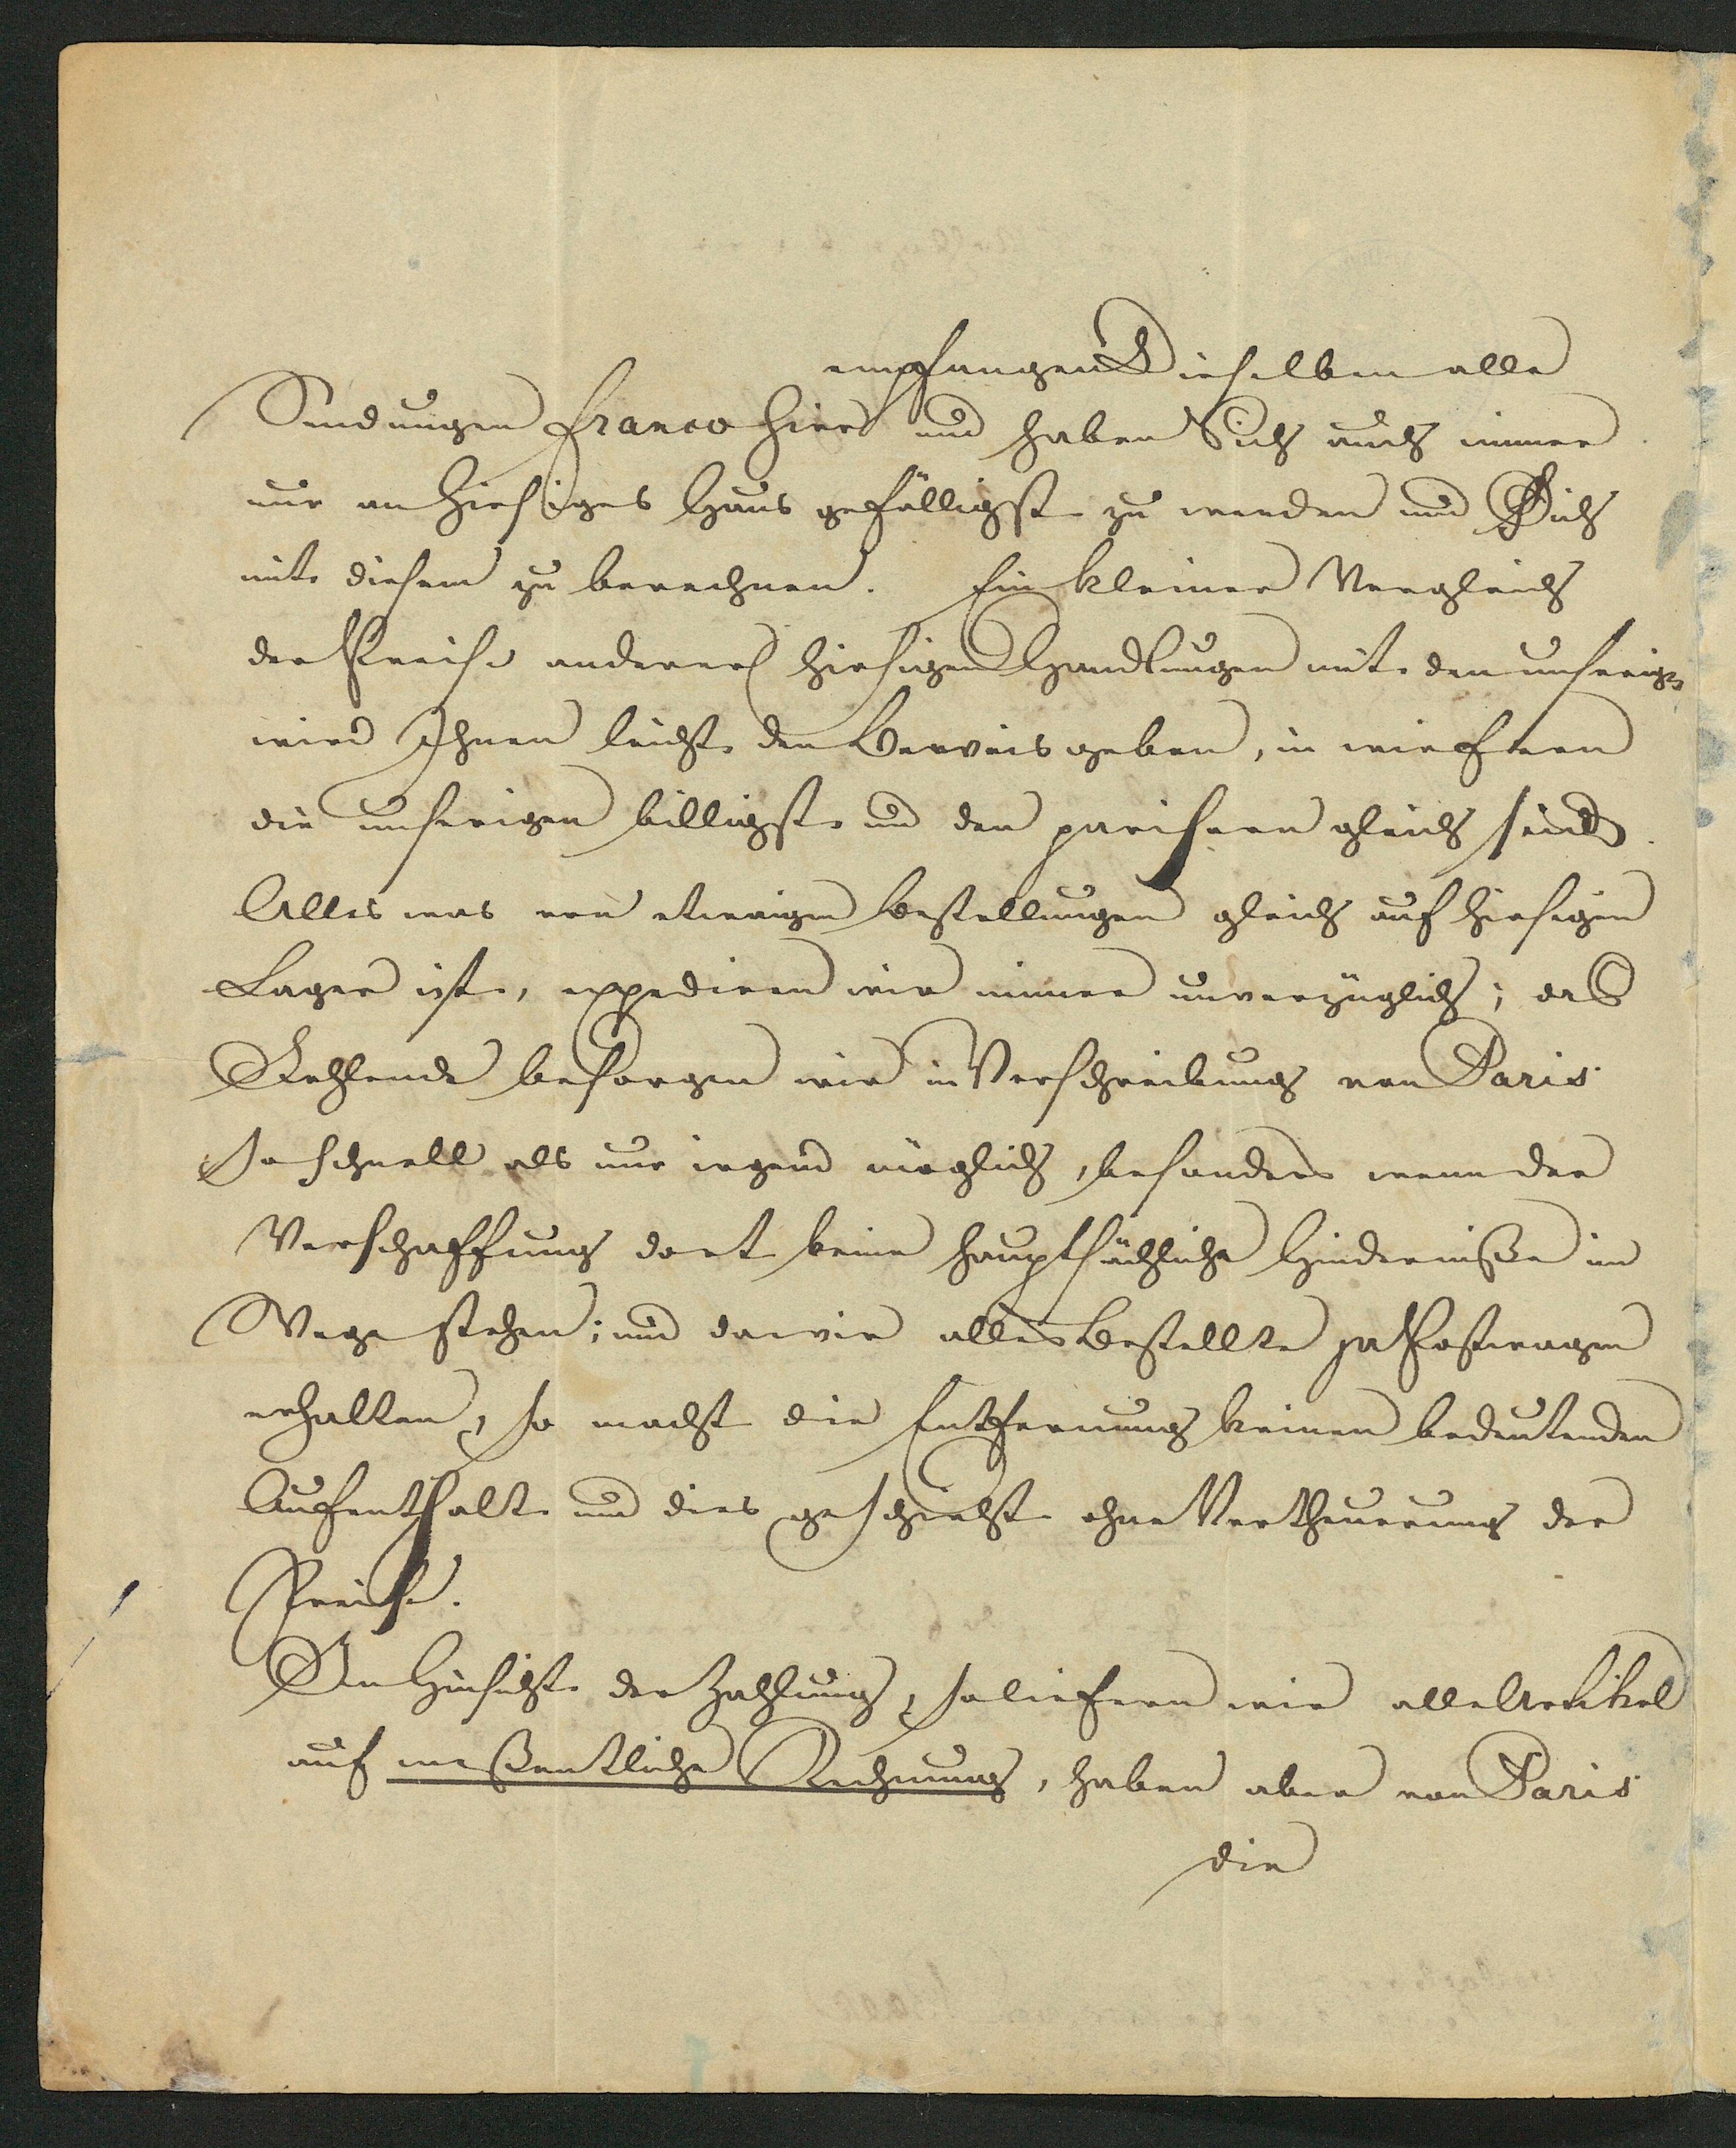 empfangen Dieselben alle
Sendungen franco hier und haben Sich auch immer
nur an hiesiges Haus gefälligst zu wenden und Sich
mit diesem zu berechnen. Ein kleiner Vergleich
der Preise anderer hiesigen Handlungen mit den unsrigen
wird Ihnen leicht den Beweis geben, in wiefern
die unserigen billigst und den parisern gleich sind.
Alles was von etwaigen Bestellungen gleich auf hiesigem
Lager ist, expediren wir immer unverzüglich; das
Fehlende besorgen wir in Verschreibung von Paris
so schnell als nur irgend möglich, besonders wenn der
Verschaffung dort keine hauptsächliche Hinderniße im
Wege stehen; und da wir alles Bestellte pr Postwagen
erhalten, so macht die Entfernung keinen bedeutenden
Aufenthalt und dies geschieht ohne Vertheuerung der
Preise.
In Hinsicht der Zahlung, so liefern wir alle Artikel
auf meßentliche Rechnung, haben aber von Paris
die